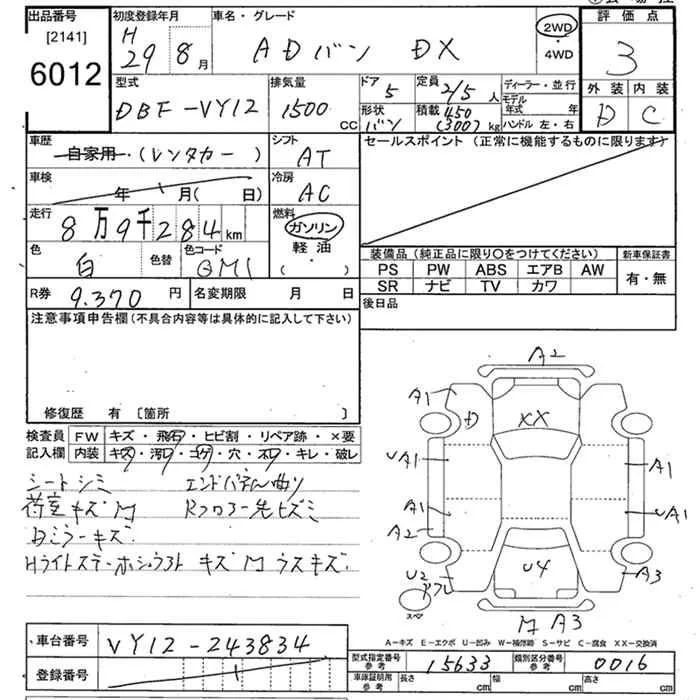 出品番号
[2141]
6012
初度登録年月
H 29 8月
車名・グレード
ADバン DX
2WD
・4WD
評価点
3
外装 内装
D C
型式
DBF-VY12
排気量
1500 CC
ドア
5
形状
バン
定員
2/5人
積載 450
(300)kg
ディーラー・並行
モデル年式 年
ハンドル 左・右
車歴
自家用・(レンタカー)
シフト
AT
セールスポイント (正常に機能するものに限ります)
車検
年 月( 日)
冷房
AC
走行
8万9千284km
燃料
ガソリン
軽油
( ・ )
色
白
色替
色コード
QM1
装備品 (純正品に限り○をつけてください)
新車保証書
PS PW ABS エアB AW
SR ナビ TV カワ
有・無
R券 9.370円
名変期限 月 日
後日品
注意事項申告欄 (不具合内容等は具体的に記入して下さい)
修復歴 有 [箇所 ]
検査員記入欄
FW キズ・飛石・ヒビ割・リペア跡・×要
内装 キズ・汚レ・コゲ・穴・ネジ・キレ・破レ
シートシミ エンドパネル曲り
荷室キズM Rフロアー先ヒズミ
Bミラーキズ
キズM ウスキズ
A2
A1
D
XX
UA1
A1
A1
UA1
A2
U2
U4
A3
スペア
M A3
A-キズ E-エクボ U-凹み W-補修跡 S-サビ C-腐食 XX-交換済
車台番号 VY12-243834
登録番号
型式指定番号 参考 15633
類別区分番号 参考 0016
車庫証明用 参考 長さ cm 幅 cm 高さ cm